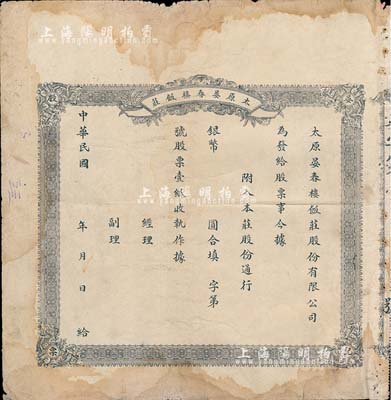 上海陽明拍賣
太原晏春樓飯莊
股
票
太原晏春樓飯莊股份有限公司
為發給股票事今據
附入本莊股份通行
銀幣 圓合填 字第
號股票壹紙收執作據
經理
副理
中華民國 年 月 日 給
上海陽明拍賣
上海陽明拍賣